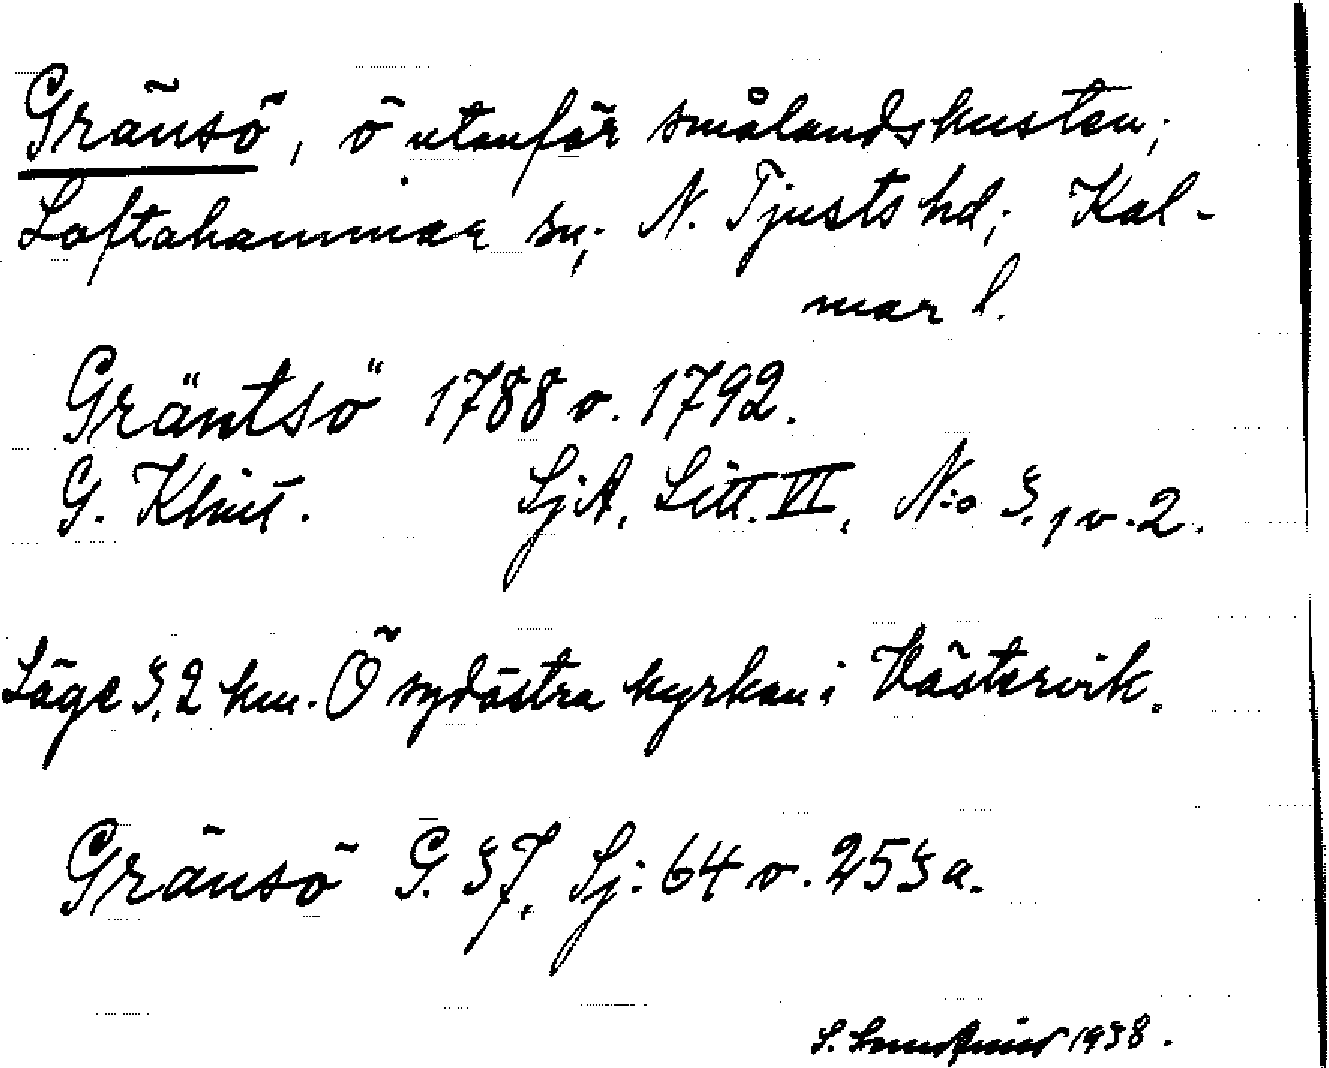 Gränsö, ö utanför smålandskusten;
Loftahammar sn; N. Tjusts hd; Kal-
mar l.
Gräntsö 1788 o. 1792.
G. Klint. SjA, Litt. VI, N:o 3, 1 o. 2.
Läge 3,2 km. Ö sydöstra kyrkan i Västervik.
Gränsö G. 37, Sj: 64 o. 253 a.
S. 1938.